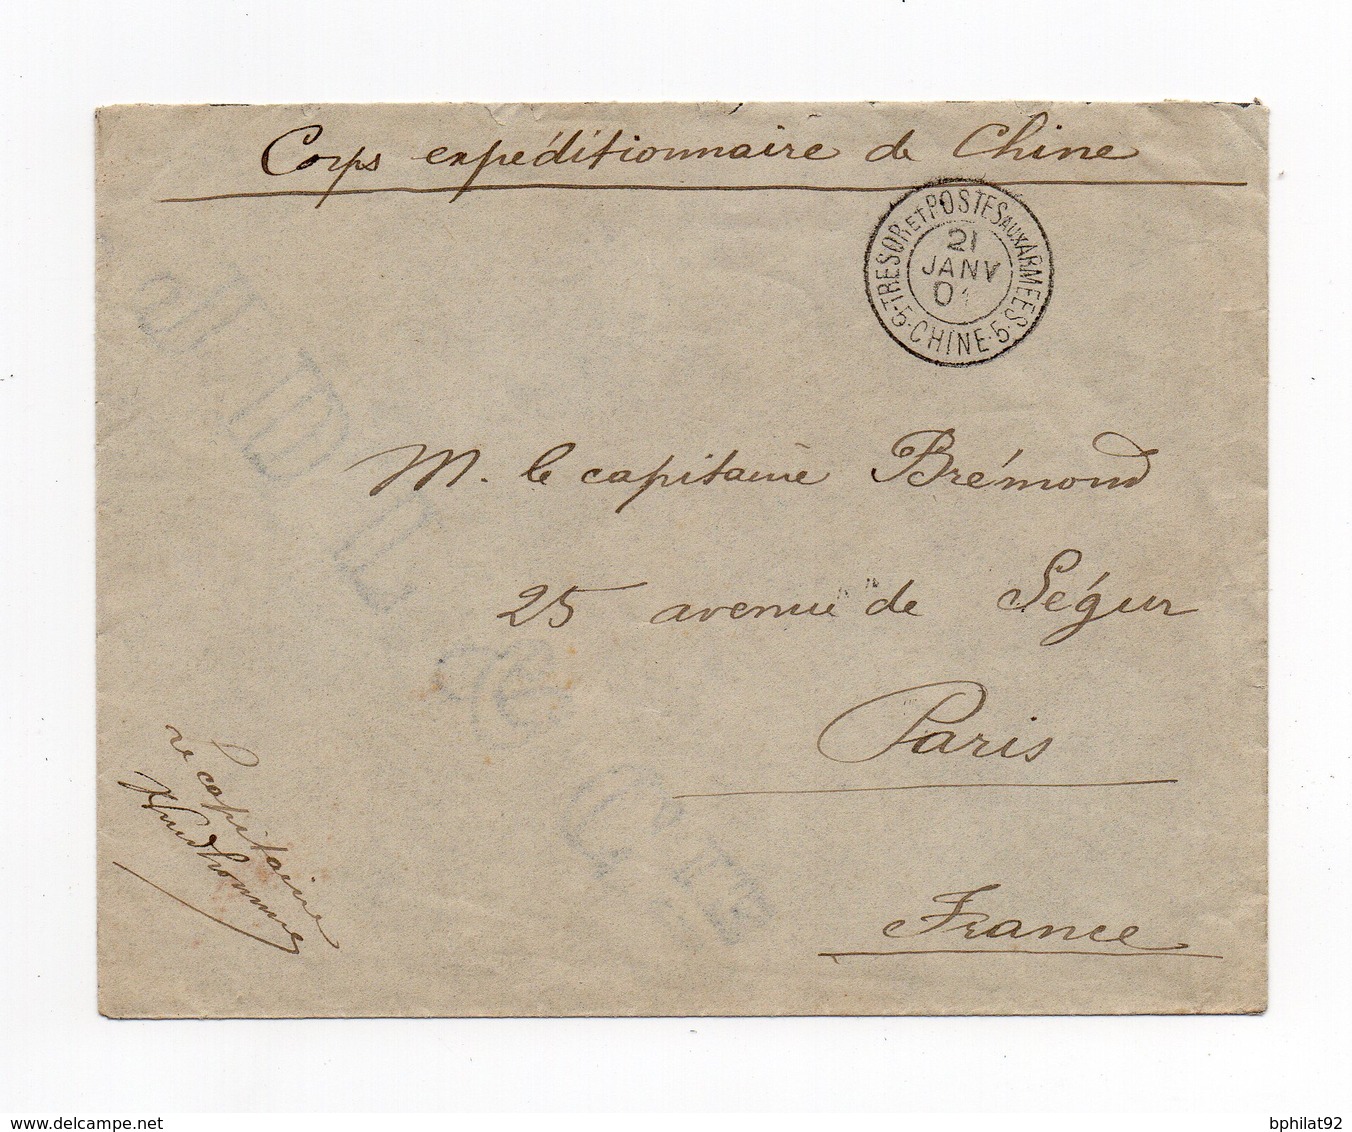 Corps expéditionnaire de Chine
TRESOR ET POSTES AUX ARMEES
21
JANV
01
5 · CHINE · 5
M. le capitaine Brémond
25 avenue de Ségur
Paris
France
capitaine
Prudhomme
www.delcampe.net
bphilat92